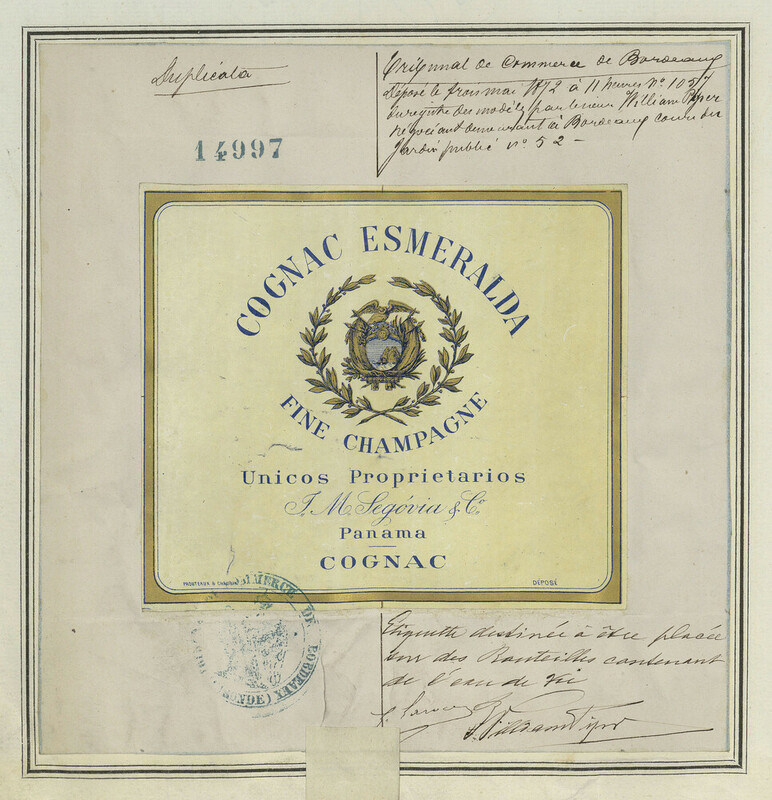 Duplicata
14997
Tribunal de Commerce de Bordeaux
Déposé le trois mai 1872 à 11 heures N° 1057
du registre des modèles par le sieur William
négociant demeurant à Bordeaux cours du
Jardin public n° 52 —
COGNAC ESMERALDA
FINE CHAMPAGNE
Unicos Proprietarios
J. M. Segóvia & Cº
Panama
COGNAC
DÉPOSÉ
COMMERCE DE BORDEAUX
(GIRONDE)
Etiquette destinée à être placée
sur des Bouteilles contenant
de l'eau de vie
William